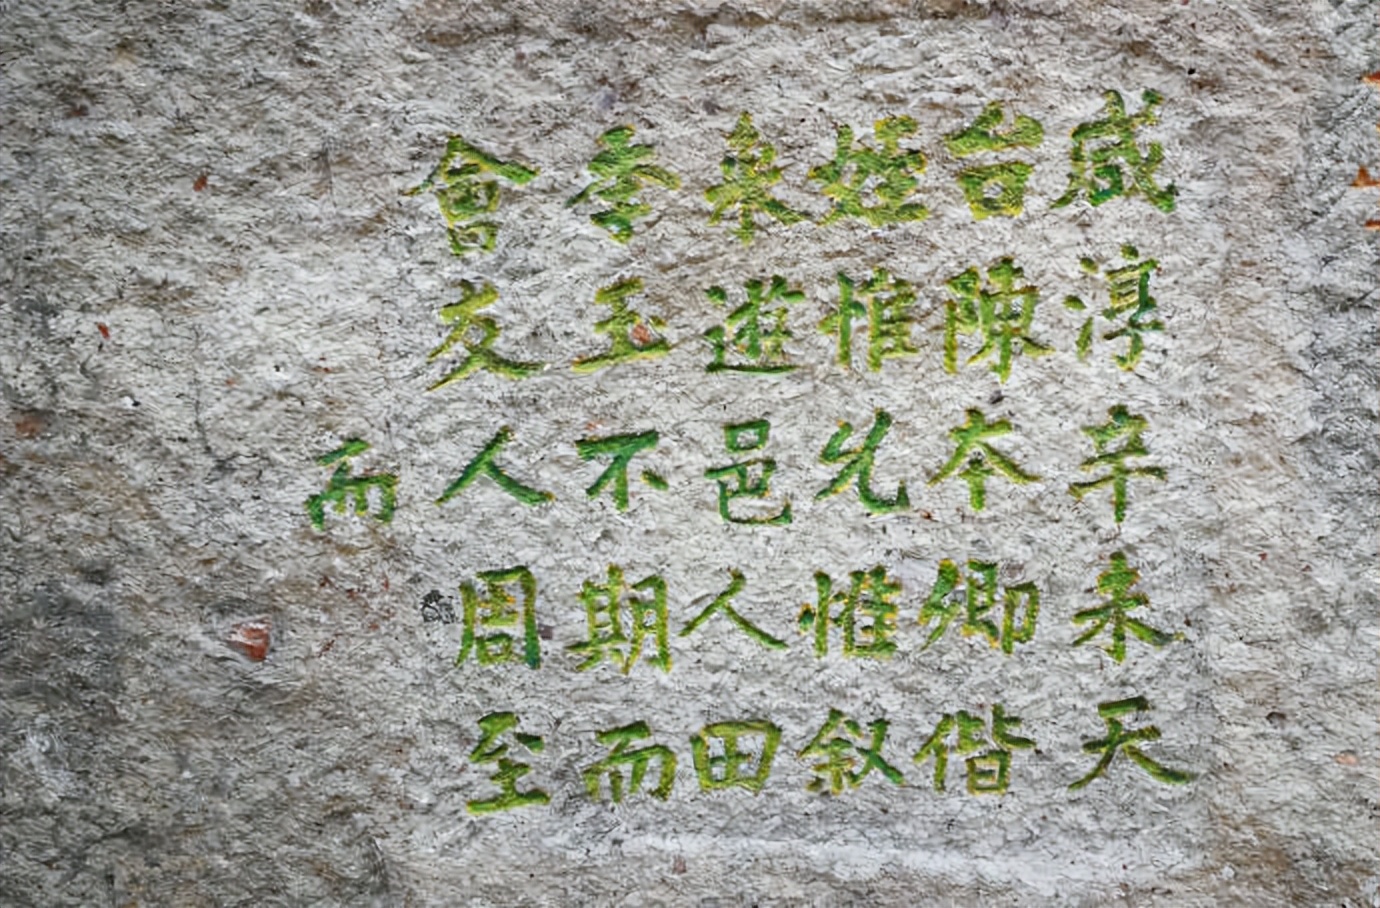 咸淳辛未天
台陳夲卿偕
姪惟允惟叙
來遊邑人田
季玉不期而
會友人周至
而